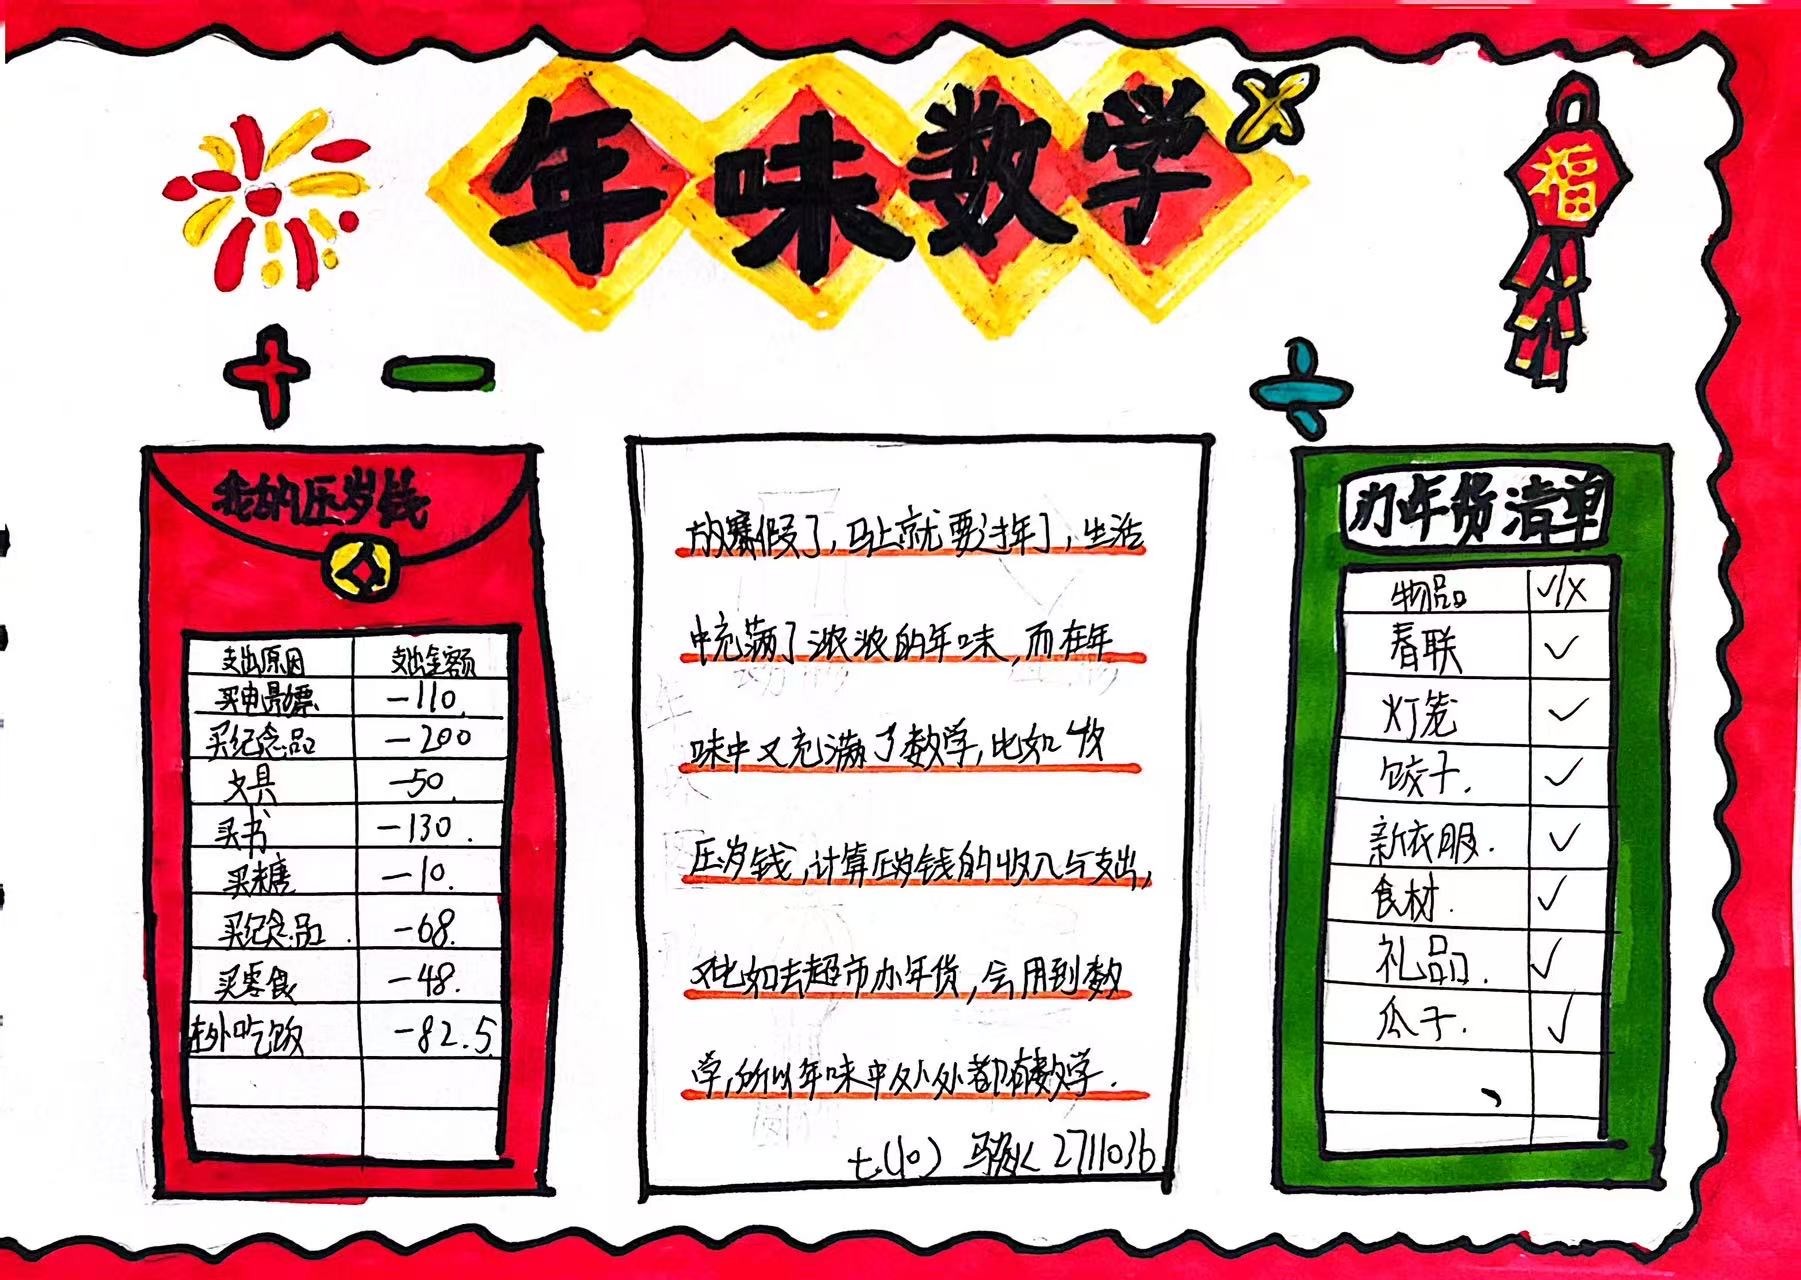 年味数学
福
我的压岁钱
支出原因 支出金额
买电影票 -110.
买纪念品 -200
文具 -50.
买书 -130.
买糖 -10.
买纪念品. -68.
买零食 -48.
在外吃饭 -82.5
放寒假了,马上就要过年了,生活
中充满了浓浓的年味,而在年
味中又充满了数学,比如收
压岁钱,计算压岁钱的收入与支出,
又比如去超市办年货,会用到数
学,所以年味中处处都有数学.
七.(10) 2711036
办年货清单
物品 √/×
春联 √
灯笼 √
饺子. √
新衣服. √
食材. √
礼品. √
瓜子. √